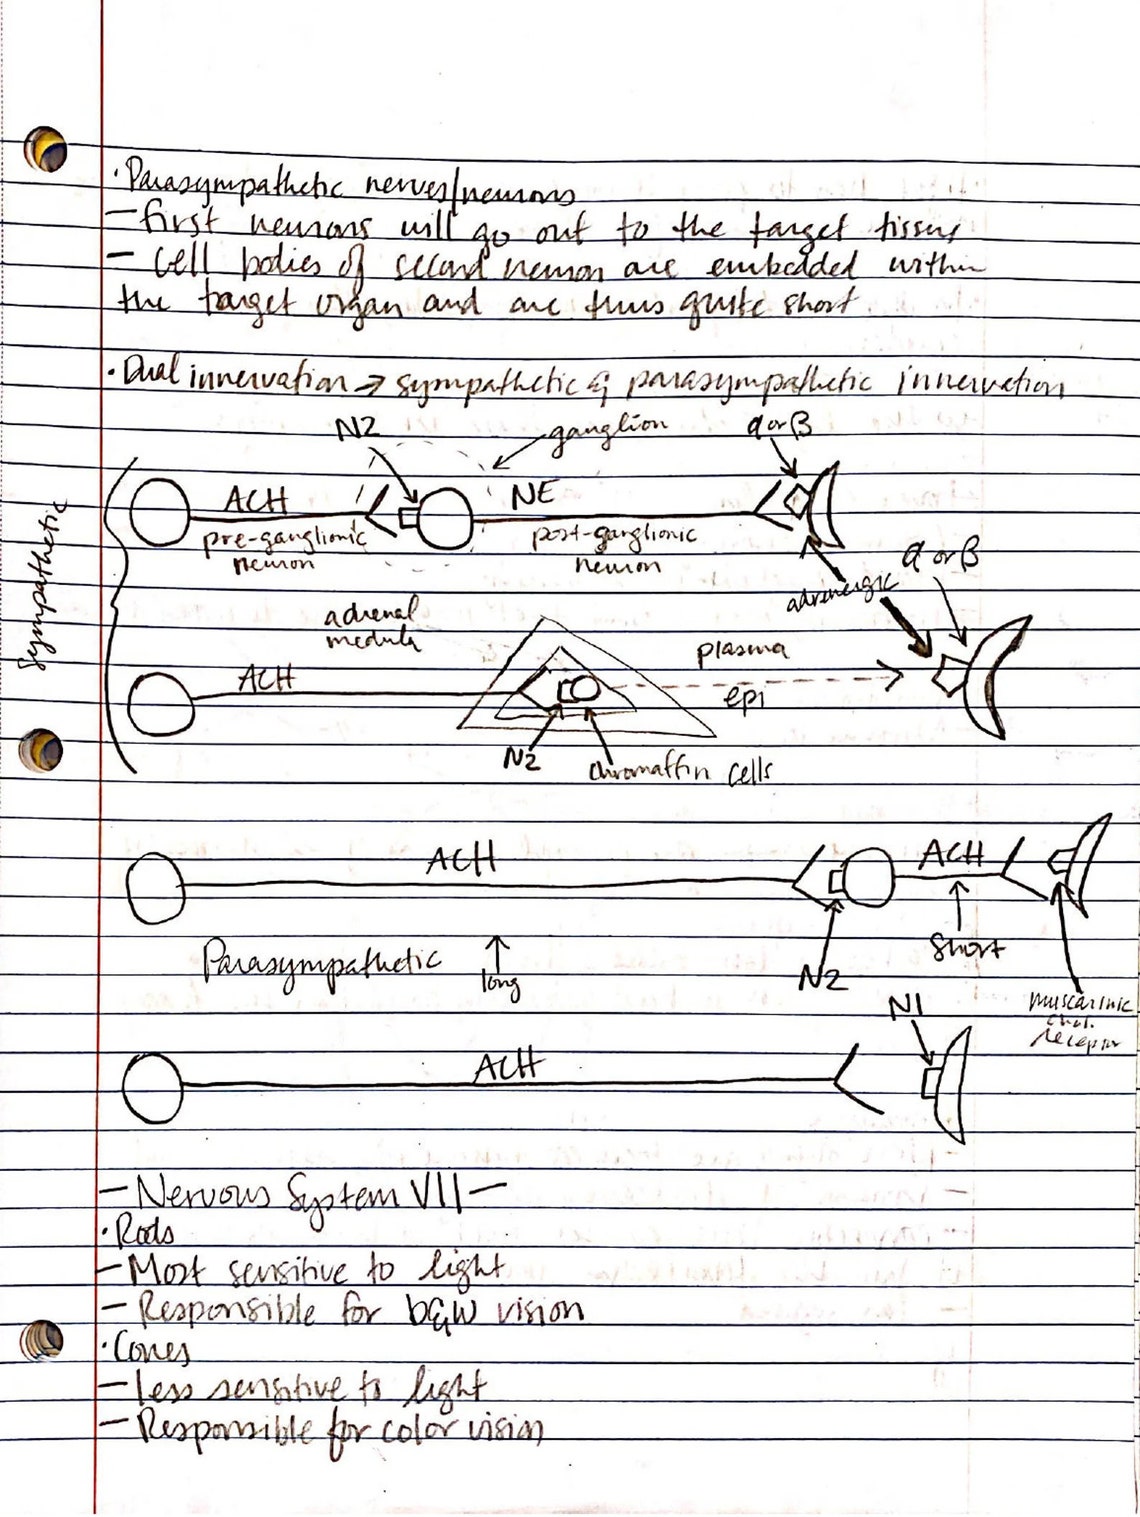 · Parasympathetic nerves/neurons
– first neurons will go out to the target tissue
– cell bodies of second neuron are embedded within
the target organ and are thus quite short
· Dual innervation → sympathetic & parasympathetic innervation
N2
ganglion
α or β
ACH
NE
pre-ganglionic
neuron
post-ganglionic
neuron
Sympathetic
adrenergic
α or β
adrenal
medulla
plasma
ACH
epi
N2
chromaffin cells
ACH
ACH
Parasympathetic
long
N2
short
muscarinic
chol.
receptor
N1
ACH
– Nervous System VII –
· Rods
– Most sensitive to light
– Responsible for b&w vision
· Cones
– less sensitive to light
– Responsible for color vision